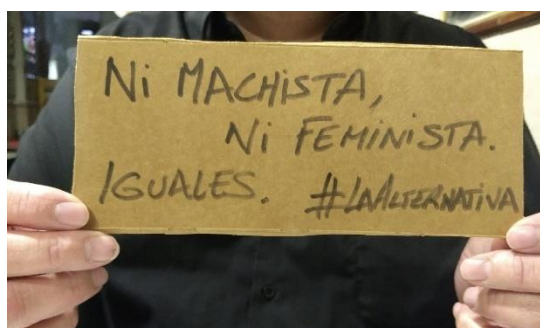 Ni MACHiSTA,
Ni FEMiNiSTA.
IGUALES. #LAALTERNATiVA